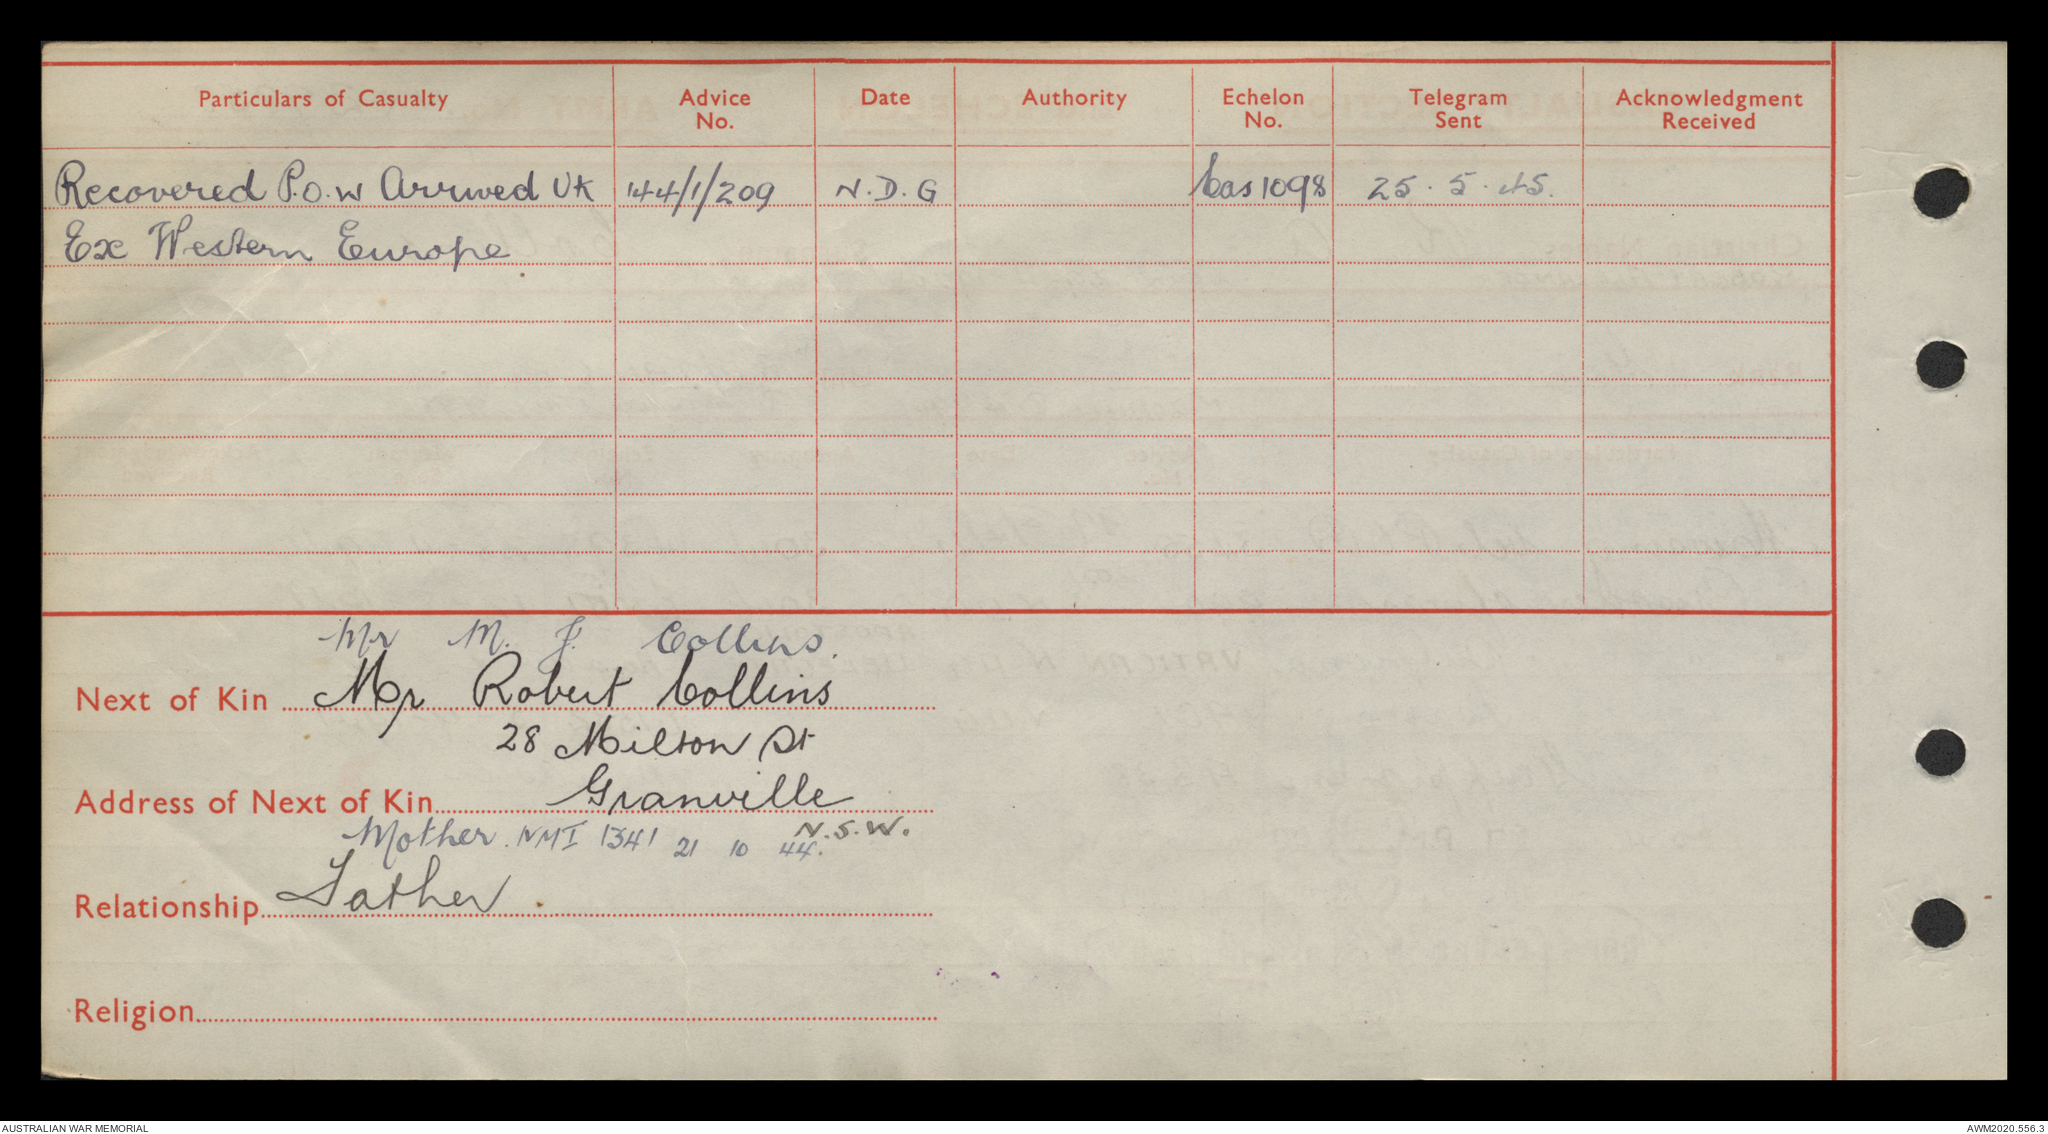 Particulars of Casualty Advice No. Date Authority Echelon No. Telegram Sent Acknowledgment Received
Recovered P.O.W Arrived UK 144/1/209 N.D.G Cas 1098 25.5.45.
Ex Western Europe
Mr M. J. Collins.
Next of Kin Mr Robert Collins
28 Milton St
Address of Next of Kin Granville
N.S.W.
Mother. NMI 1341 21 10 44.
Relationship Father
Religion
AUSTRALIAN WAR MEMORIAL
AWM2020.556.3